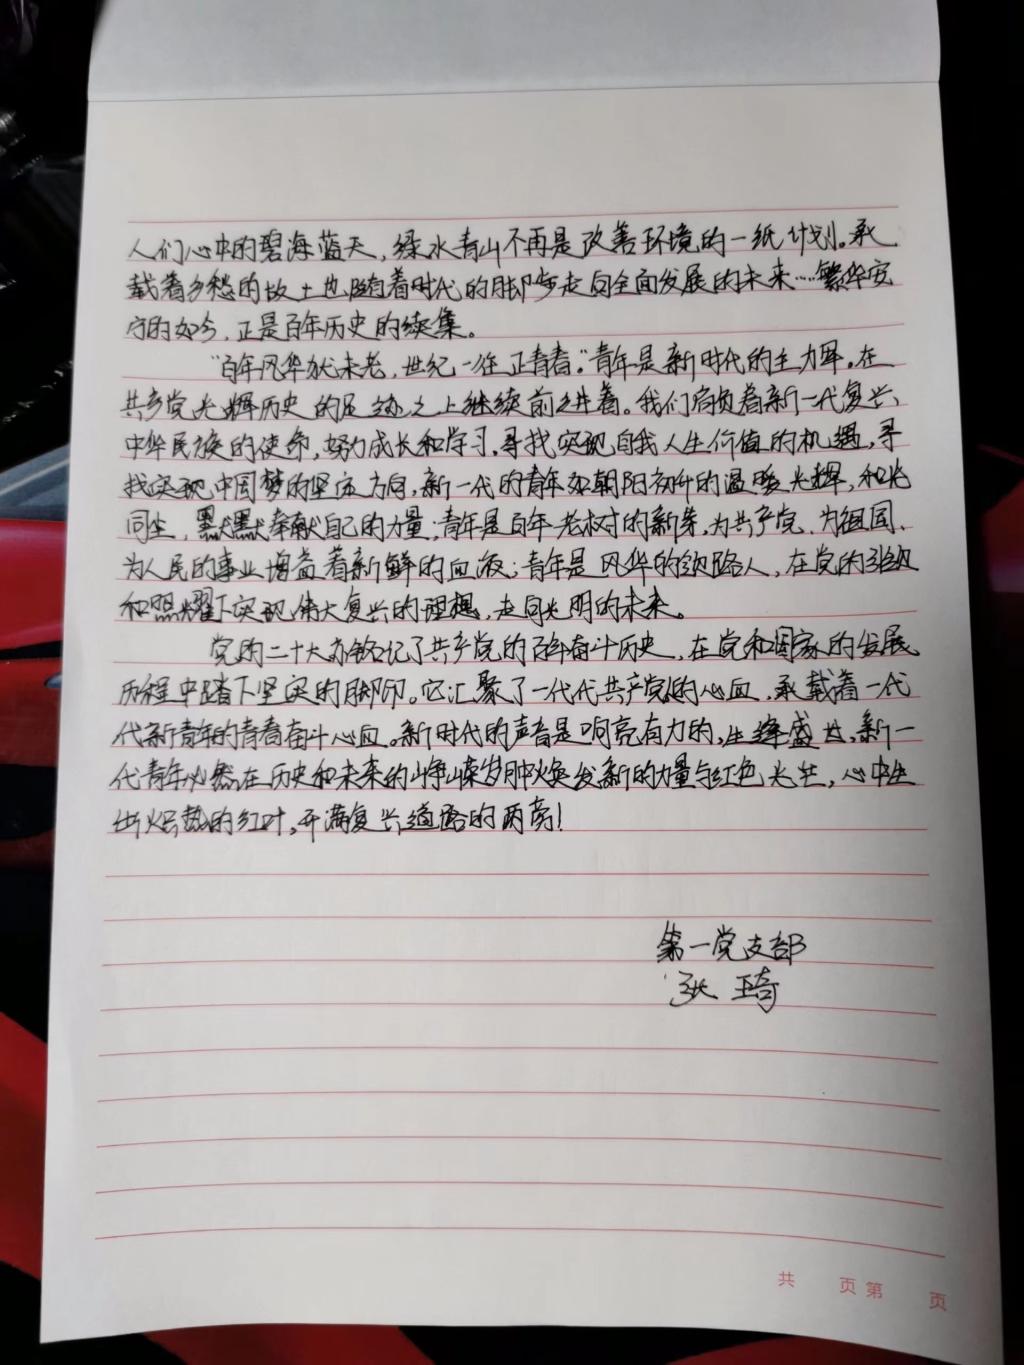 人们心中的碧海蓝天，绿水青山不再是改善环境的一纸计划。承
载着乡愁的故土也随着时代的脚步走向全面发展的未来……繁华安
宁的如今，正是百年历史的续集。
“百年风华犹未老，世纪一往正青春。”青年是新时代的主力军。在
共产党光辉历史的足迹之上继续前进着。我们肩负着新一代复兴
中华民族的使命，努力成长和学习，寻找实现自我人生价值的机遇，寻
找实现中国梦的坚实方向，新一代的青年如朝阳初升的温暖光辉，和光
同尘，默默奉献自己的力量；青年是百年老树的新芽，为共产党、为祖国、
为人民的事业增益着新鲜的血液；青年是风华的领路人，在党的引领
和照耀下实现伟大复兴的理想，走向光明的未来。
党的二十大亦铭记了共产党的百年奋斗历史，在党和国家的发展
历程中踏下坚实的脚印。它汇聚了一代代共产党的心血，承载着一代
代新青年的青春奋斗心血。新时代的声音是响亮有力的，生逢盛世，新一
代青年必然在历史和未来的峥嵘岁月中焕发新的力量与红色光芒，心中生
出炽热的红叶，开满复兴道路的两旁！
第一党支部
张琦
共 页 第 页